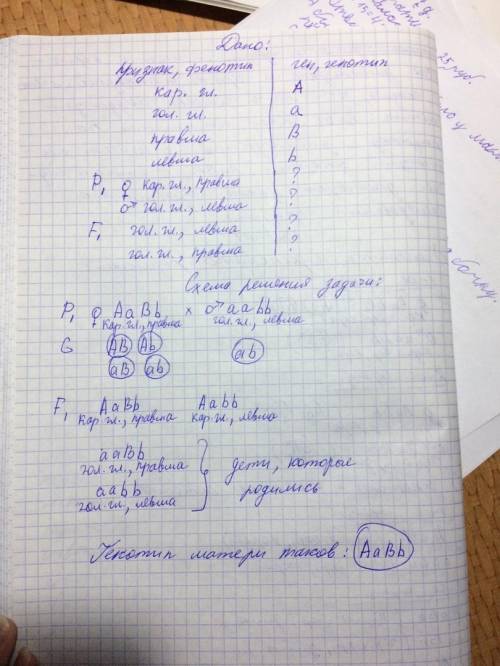 Дано:
признак, фенотип | ген, генотип
кар. гл. A
гол. гл. a
правша B
левша b
P, ♀ кар. гл., правша ?
♂ гол. гл., левша ?
F, гол. гл., левша ?
гол. гл., правша ?
Схема решения задачи:
P, ♀ AaBb × ♂ aabb
кар. гл., правша гол. гл., левша
G AB Ab ab
aB ab
F, AaBb Aabb
кар. гл., правша кар. гл., левша
aaBb
гол. гл., правша
дети, которые
aabb
гол. гл., левша
родились
Генотип матери таков: AaBb
25 руб.